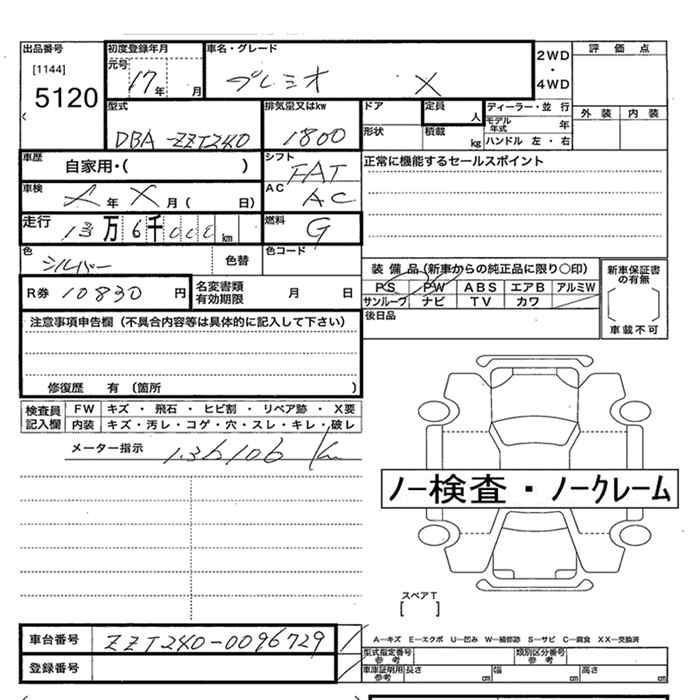 出品番号 初度登録年月 車名・グレード 2WD・4WD 評価点
[1144] 元号 17年 月 プレミオ X
5120
型式 排気量又はkw ドア 定員 人 ディーラー・並行 外装 内装
DBA-ZZT240 1800 形状 積載 kg モデル年式 年
ハンドル 左・右
車歴 自家用・( ) シフト FAT 正常に機能するセールスポイント
車検 年 X 月 ( 日) AC AC
走行 13万6千 km 燃料 G
色 シルバー 色替 色コード
装備品(新車からの純正品に限り○印) 新車保証書の有無
R券 10830円 名変書類有効期限 月 日 PS PW ABS エアB アルミW
サンルーフ ナビ TV カワ
車載不可
注意事項申告欄(不具合内容等は具体的に記入して下さい) 後日品
修復歴 有 (箇所 )
検査員記入欄 FW キズ・飛石・ヒビ割・リペア跡・X要
内装 キズ・汚レ・コゲ・穴・スレ・キレ・破レ
メーター指示 136106 Km
ノー検査・ノークレーム
スペアT
[ ]
車台番号 ZZT240-0096729
A―キズ E―エクボ U―凹み W―補修跡 S―サビ C―腐食 XX―交換済
型式指定番号 参考 類別区分番号 参考
登録番号 車庫証明用 参考 長さ cm 幅 cm 高さ cm